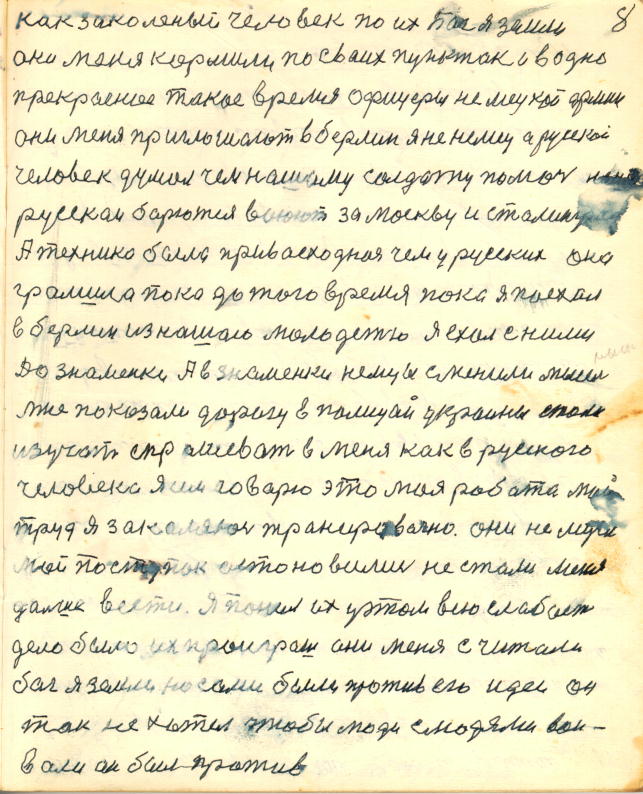 8
как заколеный человек по их бог я земли
они меня кормили по сваих пунктах и водно
прекрасное такое время офицеры немецкой армии
они меня приглошают в берлин я не немец а русской
человек думал чем нашиму солдату помоч
русскаи барются воюют за москву и сталинград
А техника была привасходная чем у русских она
грамила пока до того время пока я поехал
в берлин из нашаго молодстю я ехал с ними
До знаменки А в знаменки немцы сменили мысли
мне показали дорогу в полицай украины стали
изучать спрашеват в меня как в русского
человека я им говарю это моя работа мой
труд я закаляюч транеровачно. они не мери
мой поступок остоновилии не стали меня
далше вести. Я понил их уэтом всю слабост
дело было их проиграш они меня считали
бог я земли но сами были против его идеи он
так не хотел чтобы люди с людями вои-
вали он был против